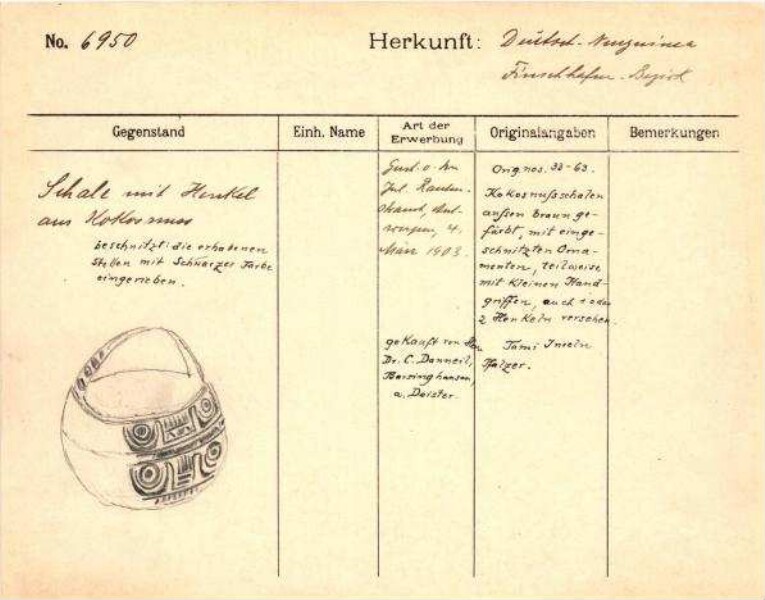 No. 6950
Herkunft: Deutsch-Neuguinea
Finschhafen-Bezirk
Gegenstand
Einh. Name
Art der
Erwerbung
Originalangaben
Bemerkungen
Schale mit Henkel
aus Kokosnuss
beschnitzt: die erhabenen
Stellen mit Schwarzer Farbe
eingerieben.
Jul.
4.
März 1903.
gekauft von
Dr. C. Danneil,
Barsinghausen,
a. Deister.
Orig. nos. 33-63.
Kokosnußschalen
außen braun ge-
färbt, mit einge-
schnitzten Orna-
menten, teilweise
mit Kleinen Hand-
griffen, auch 1 oder
2 Henkeln versehen.
Tami Inseln